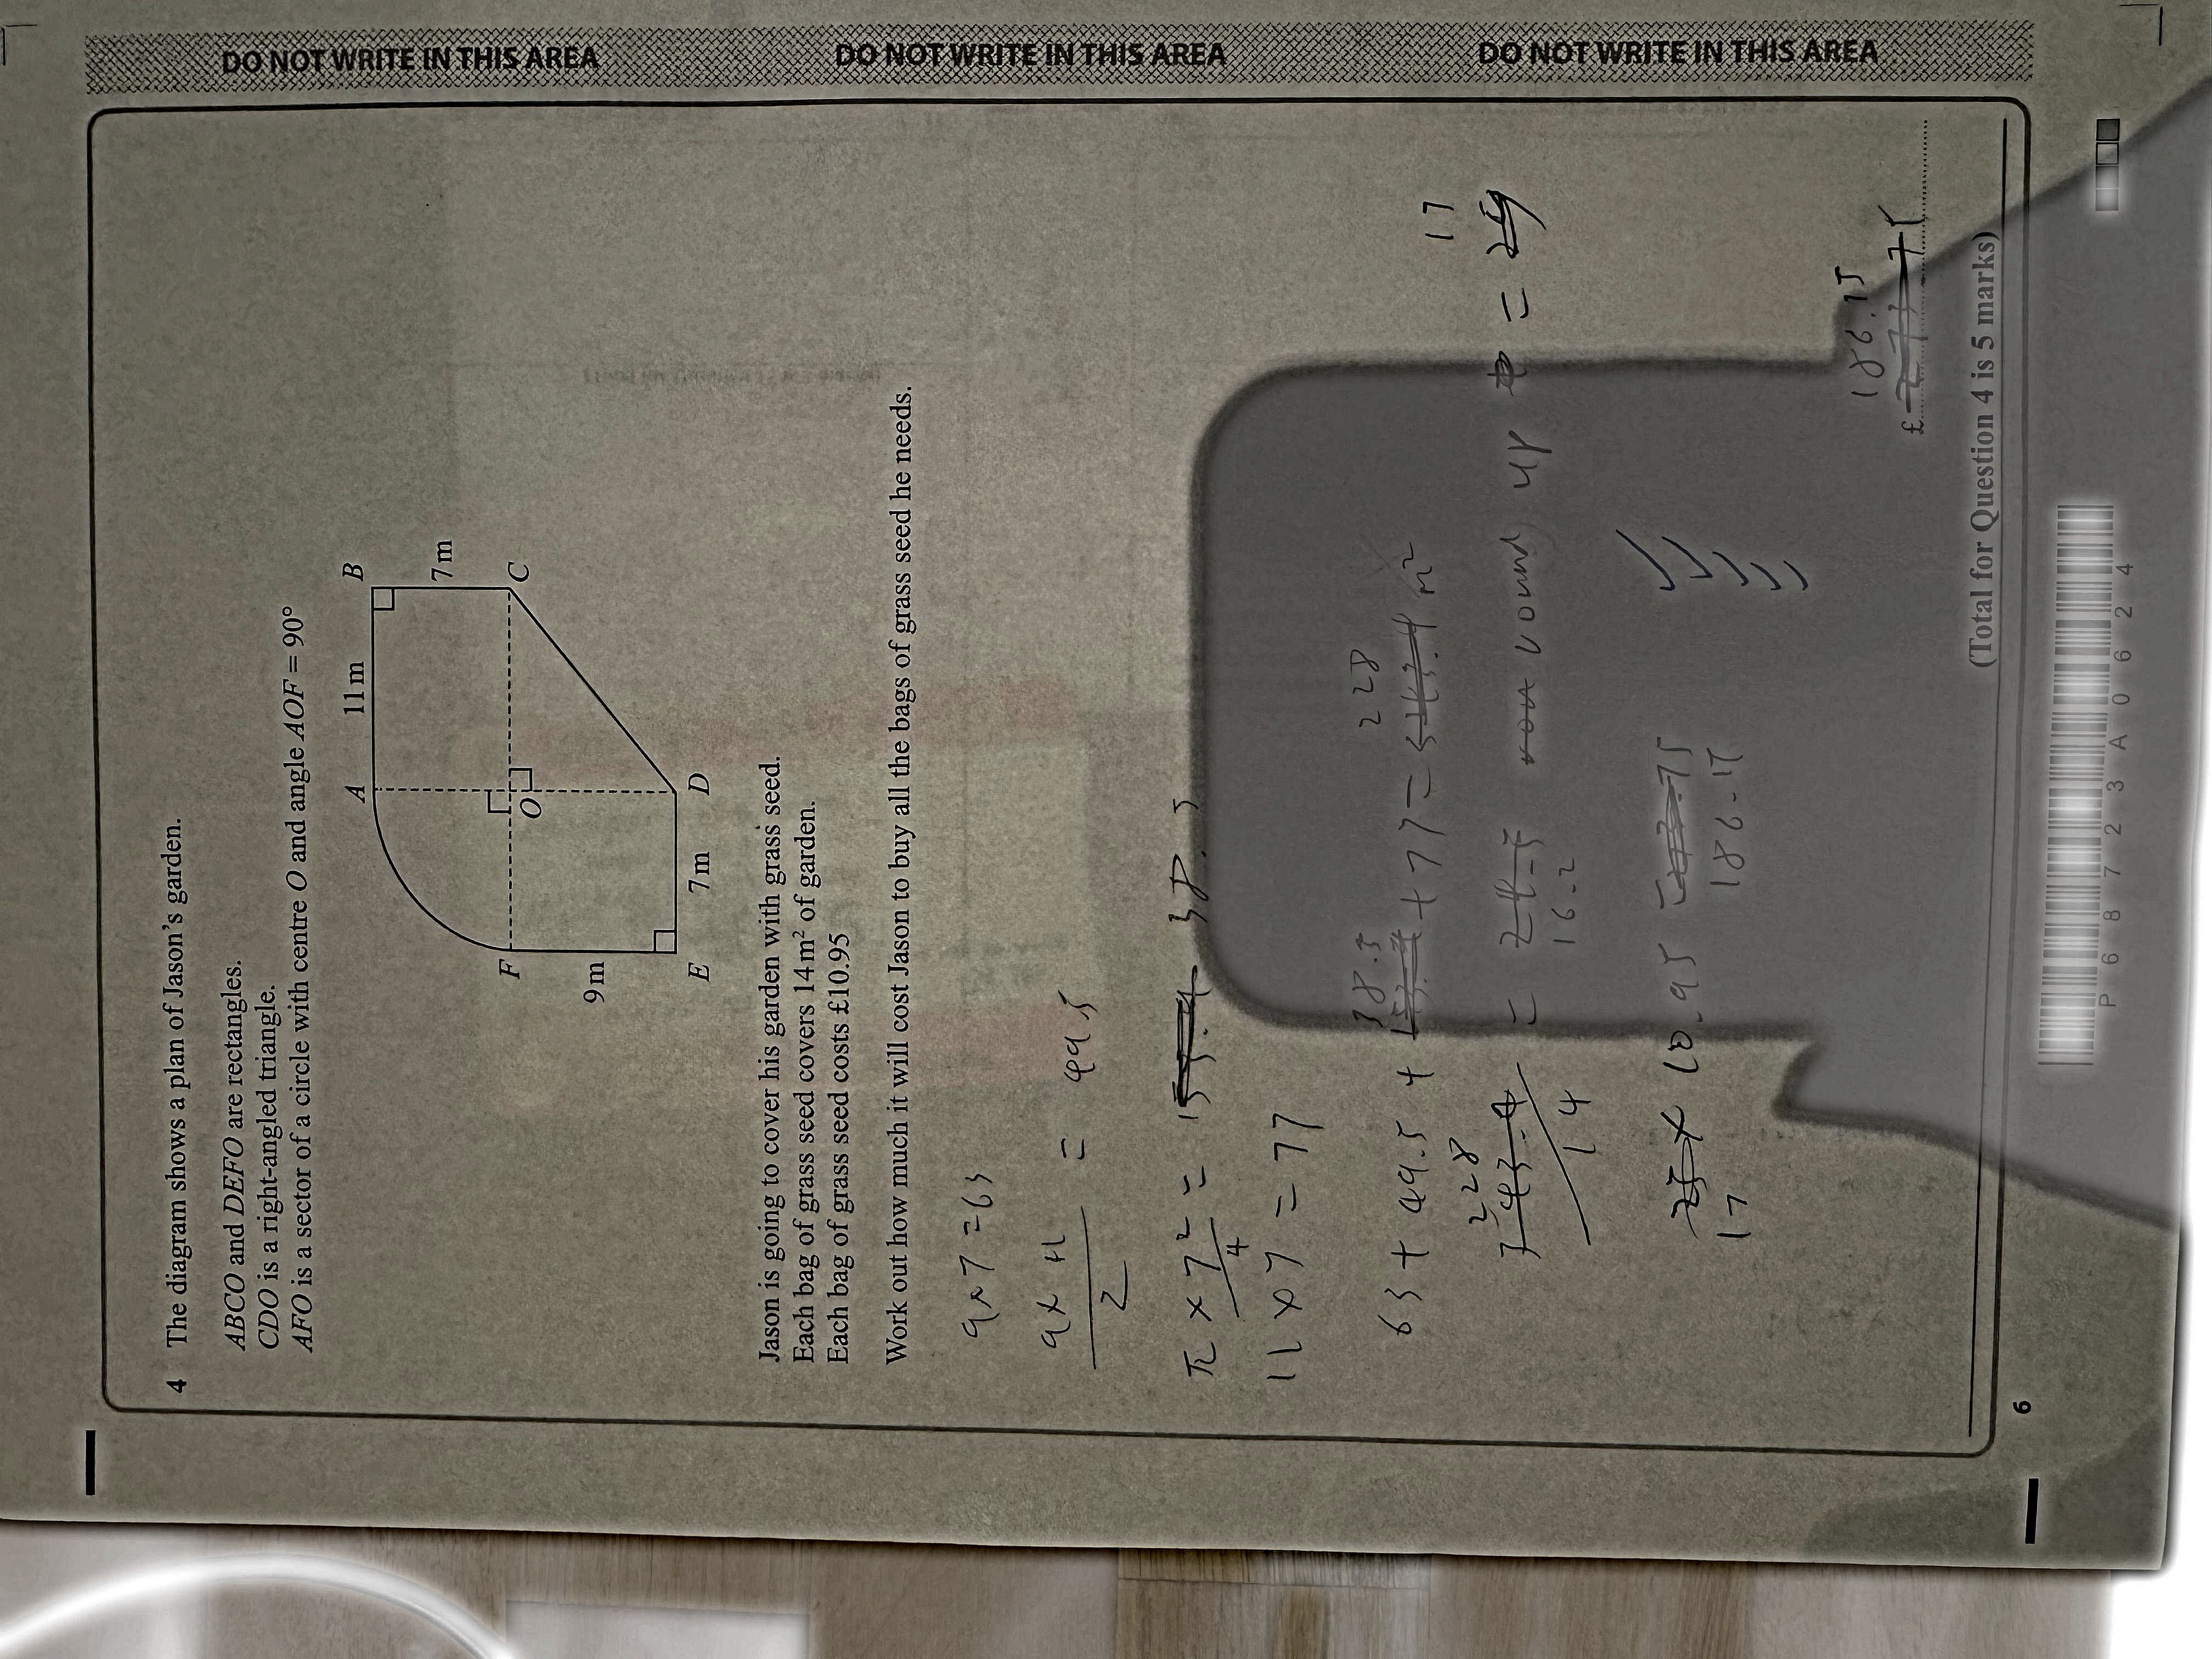 DO NOT WRITE IN THIS AREA
DO NOT WRITE IN THIS AREA
DO NOT WRITE IN THIS AREA
4 The diagram shows a plan of Jason's garden.
ABCO and DEFO are rectangles.
CDO is a right-angled triangle.
AFO is a sector of a circle with centre O and angle AOF = 90°
A 11 m B
7 m
F O C
9 m
E 7 m D
Jason is going to cover his garden with grass seed.
Each bag of grass seed covers 14 m² of garden.
Each bag of grass seed costs £10.95
Work out how much it will cost Jason to buy all the bags of grass seed he needs.
9 × 7 = 63
9 × 11 / 2 = 49.5
π × 7² / 4 = 38.5
11 × 7 = 77
63 + 49.5 + 38.5 + 77 = 228 m²
228 / 14 = 16.2 round up = 17
17 × 10.95 = 186.15
£ 186.15
(Total for Question 4 is 5 marks)
6
P 6 8 7 2 3 A 0 6 2 4